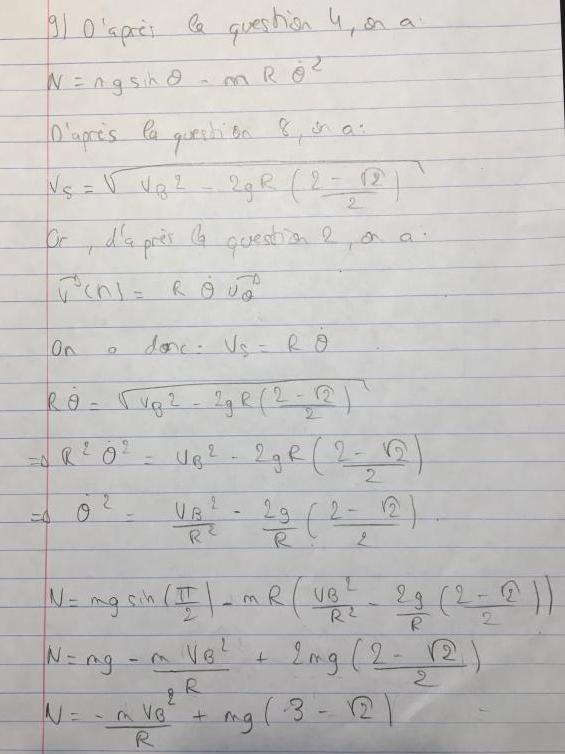 9) D'après la question 4, on a:
N = mg sin θ - m R θ̇²
D'après la question 8, on a:
Vs = √(VB² - 2gR((2 - √2)/2))
Or, d'après la question 2, on a:
V⃗(M) = R θ̇ u⃗θ
On a donc: Vs = R θ̇
Rθ̇ = √(VB² - 2gR((2 - √2)/2))
=> R² θ̇² = VB² - 2gR((2 - √2)/2)
=> θ̇² = VB²/R² - 2g/R((2 - √2)/2).
N = mg sin(π/2) - mR(VB²/R² - 2g/R((2 - √2)/2))
N = mg - m VB²/R + 2mg((2 - √2)/2)
N = - m VB²/R + mg(3 - √2)